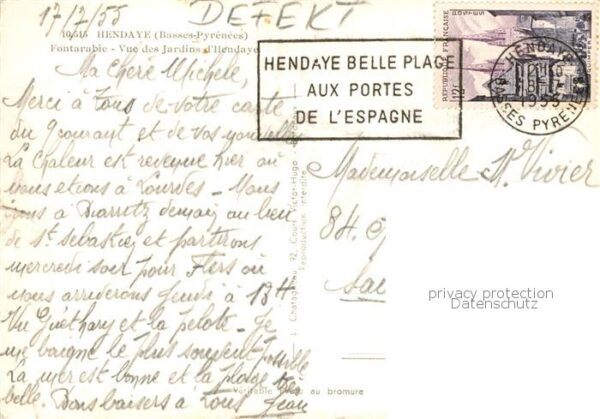 17/7/55 DEFEKT
10.515 HENDAYE (Basses-Pyrénées)
Fontarabie - Vue des Jardins d'Hendaye
Ma chère Michele,
Merci à tous de votre carte
du 9 courant et de vos nouvelles
La chaleur est revenue hier où
nous étions à Lourdes - Nous
à Biarritz demain au lieu
de St Sebastien et partirons
mercredi soir pour Flers où
nous arriverons jeudi à 13H
Vu Guéthary et la pelote - Je
me baigne le plus souvent possible
La mer est bonne et la plage très
belle. Bons baisers à tous Jean
HENDAYE BELLE PLAGE
AUX PORTES
DE L'ESPAGNE
REPUBLIQUE FRANÇAISE
POSTES
12F
QUIMPER
HENDAYE
1955
BASSES PYRENEES
Mademoiselle M. Vivier
84
privacy protection
Datenschutz
92, Cours Victor-Hugo
Reproduction interdite
Véritable photo au bromure